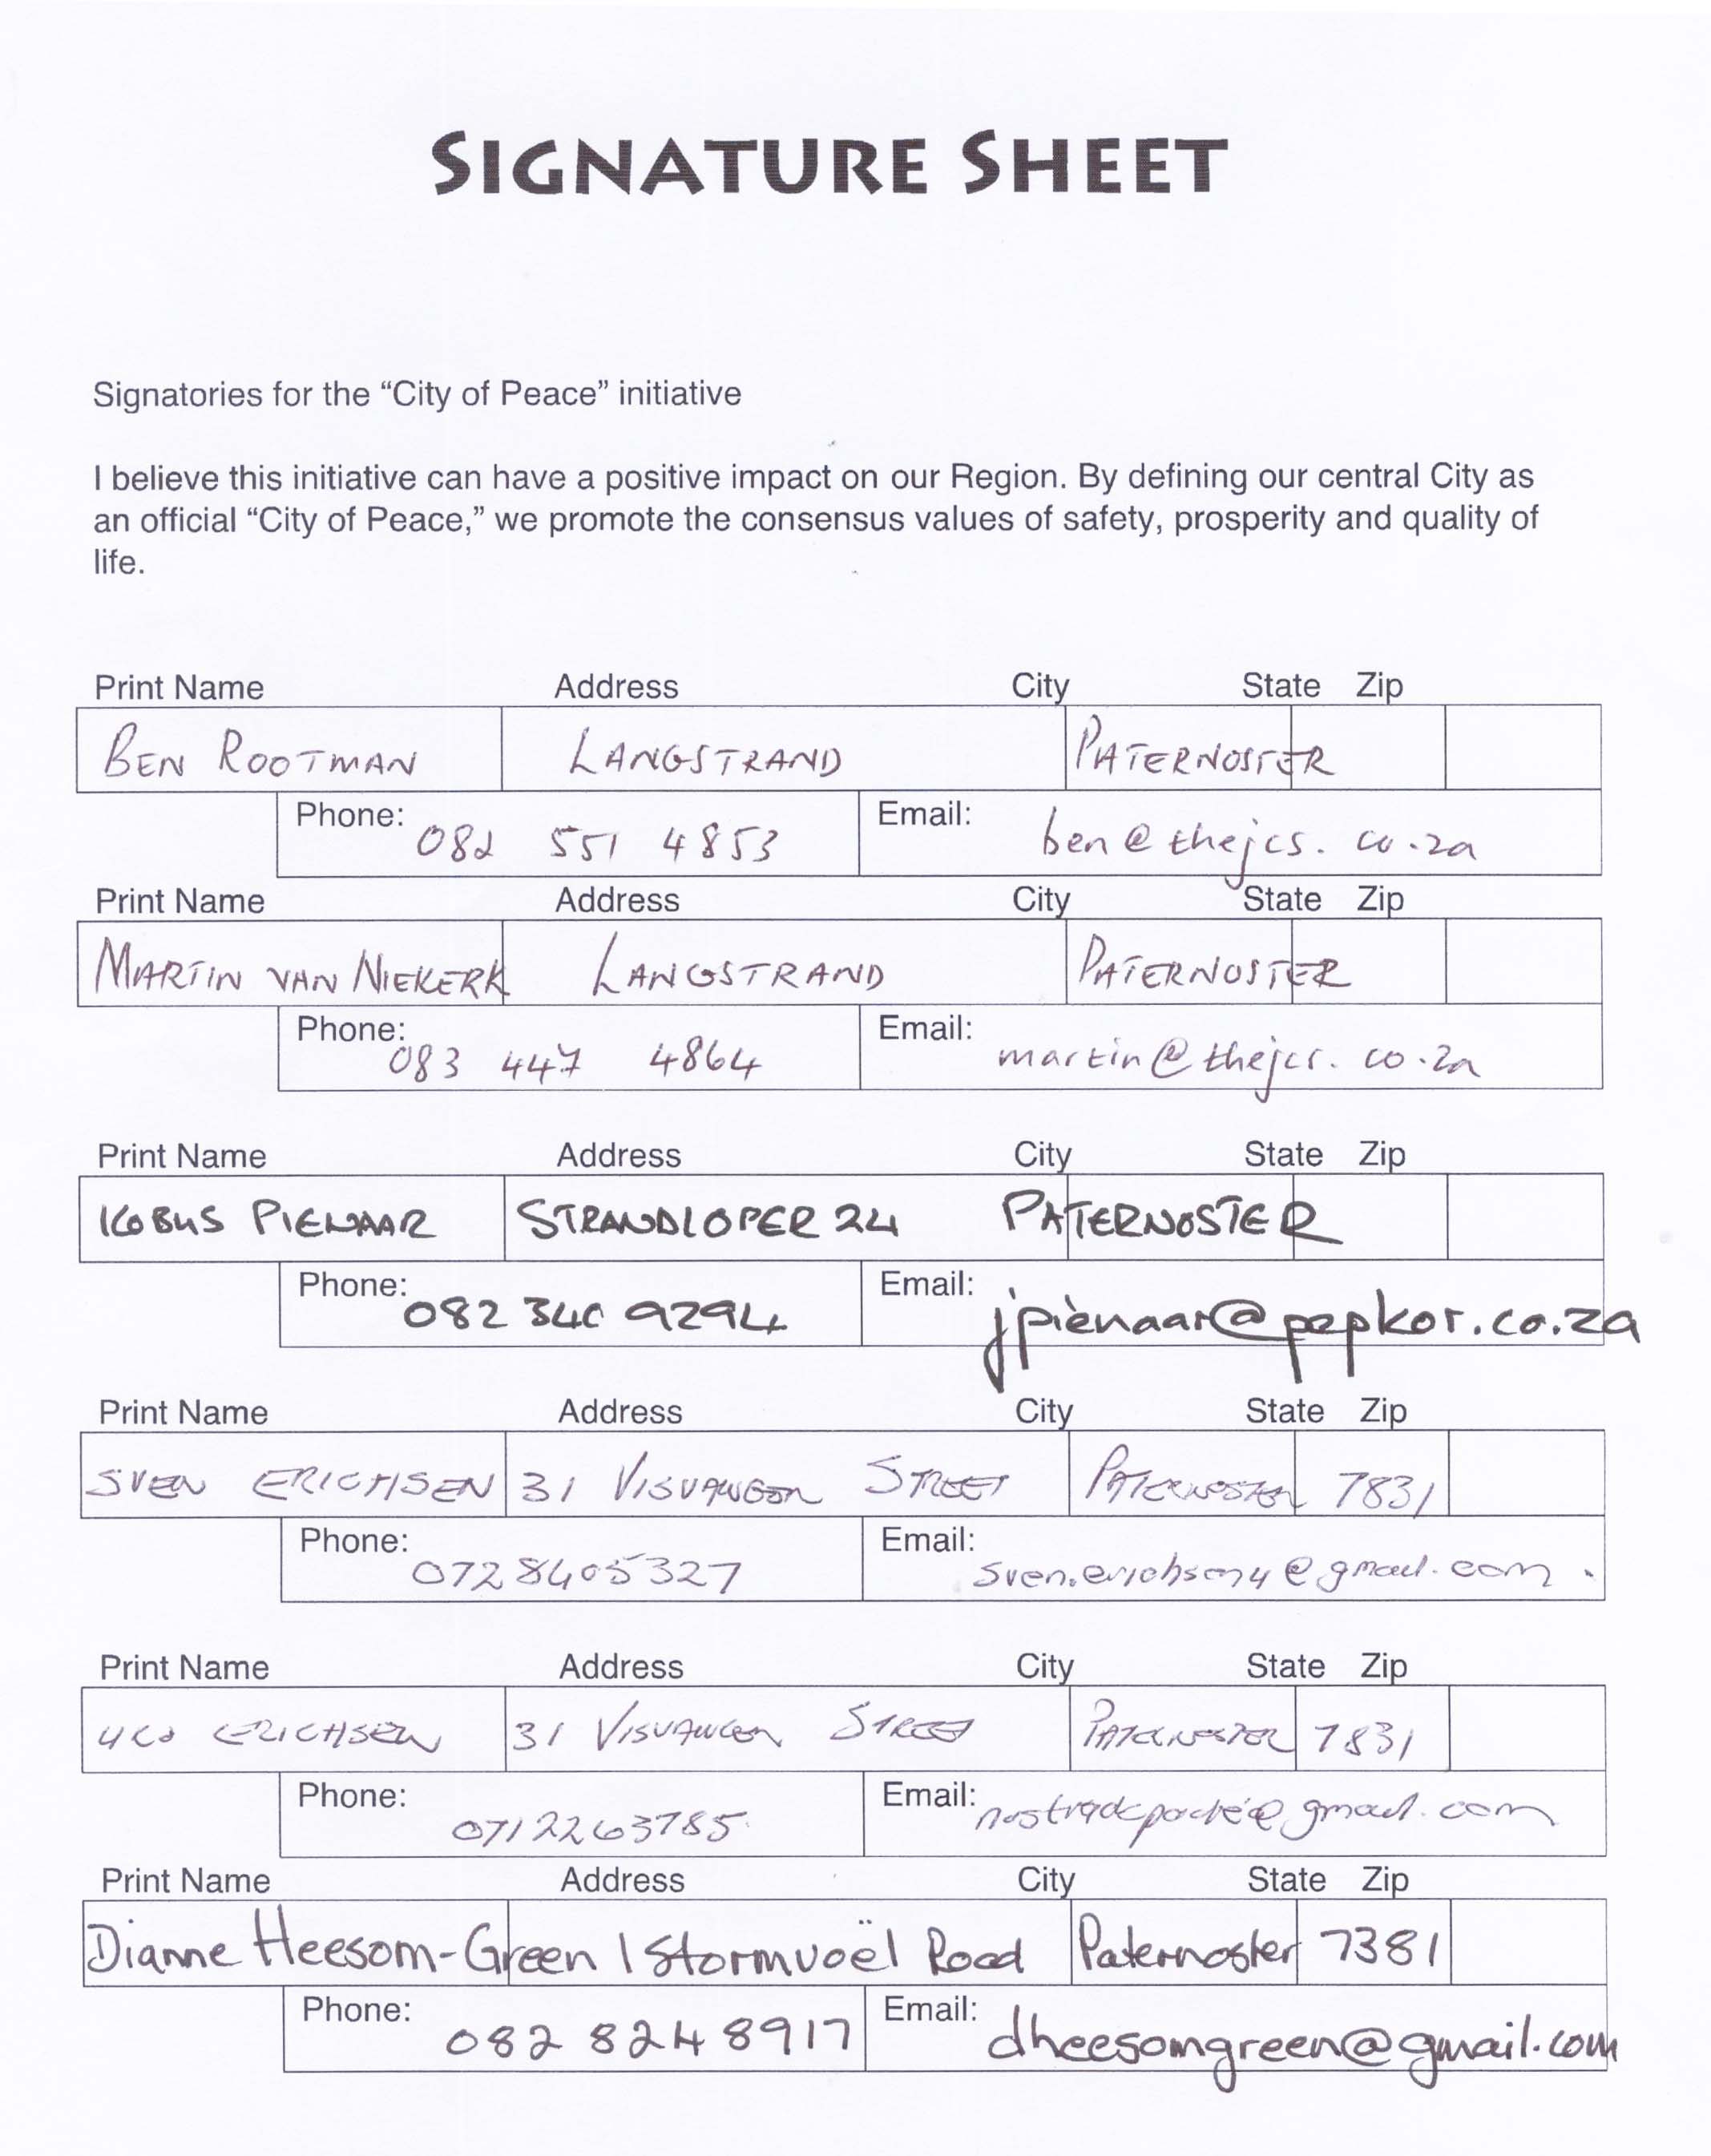 SIGNATURE SHEET
Signatories for the “City of Peace” initiative
I believe this initiative can have a positive impact on our Region. By defining our central City as
an official “City of Peace,” we promote the consensus values of safety, prosperity and quality of
life.
Print Name Address City State Zip
BEN ROOTMAN LANGSTRAND PATERNOSTER
Phone: 082 551 4853 Email: ben@thejcs.co.za
Print Name Address City State Zip
MARTIN VAN NIEKERK LANGSTRAND PATERNOSTER
Phone: 083 447 4864 Email: martin@thejcs.co.za
Print Name Address City State Zip
KOBUS PIENAAR STRANDLOPER 24 PATERNOSTER
Phone: 082 340 9294 Email: jpienaar@pepkor.co.za
Print Name Address City State Zip
SVEN ERICHSEN 31 VISVANGER STREET PATERNOSTER 7831
Phone: 0728405327 Email:
Print Name Address City State Zip
ERICHSEN 31 VISVANGER STREET PATERNOSTER 7831
Phone: 0712263785 Email:
Print Name Address City State Zip
Dianne Heesom-Green 1 Stormvoël Road Paternoster 7381
Phone: 082 824 8917 Email: dheesomgreen@gmail.com